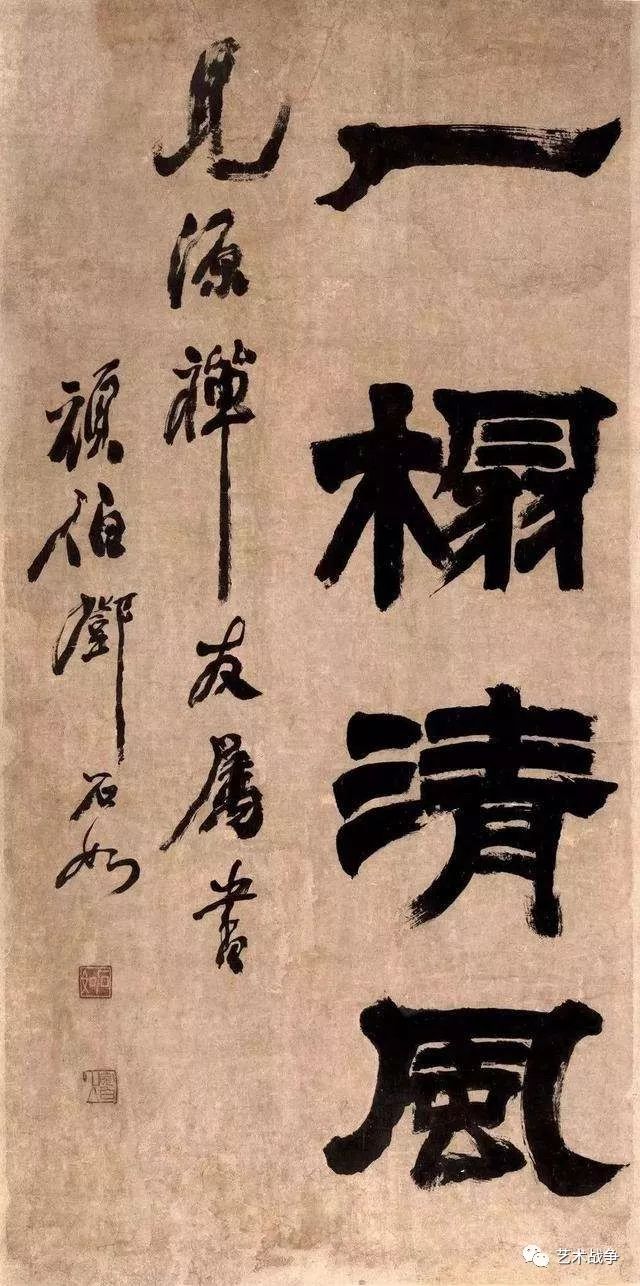 一榻清風
見源禪友屬書
頑伯鄧石如
石如
艺术战争